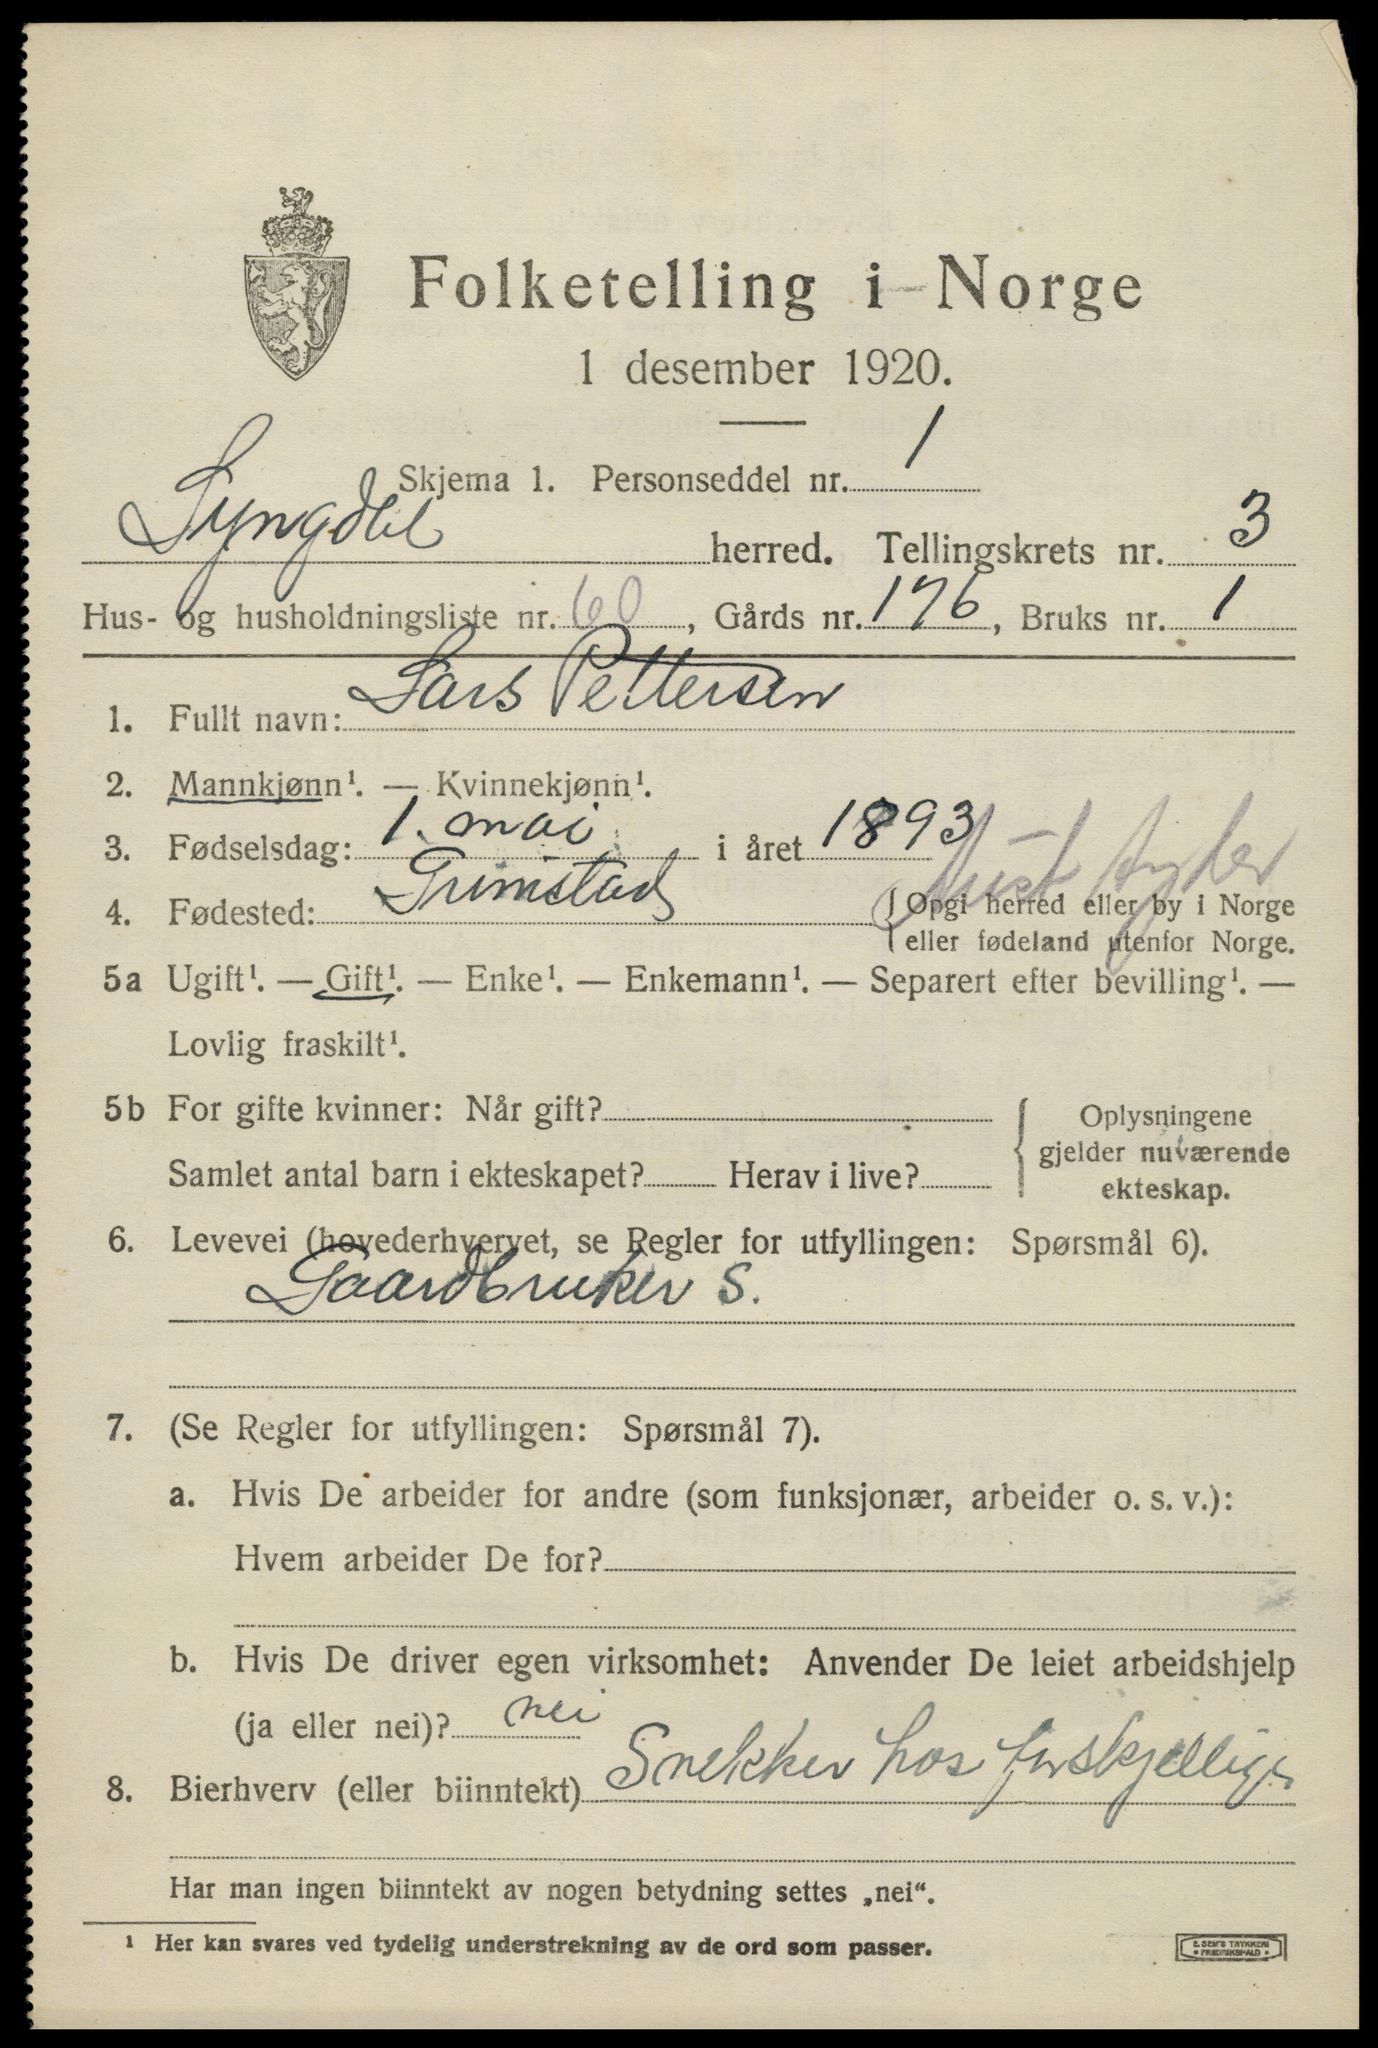 Folketelling i Norge
1 desember 1920.
Skjema 1. Personseddel nr. 1
Lyngdal herred. Tellingskrets nr. 3
Hus- og husholdningsliste nr. 60, Gårds nr. 176, Bruks nr. 1
1. Fullt navn: Lars Pettersen
2. Mannkjønn¹. — Kvinnekjønn¹.
3. Fødselsdag: 1. mai i året 1893
Aust Agder
4. Fødested: Grimstad { Opgi herred eller by i Norge
eller fødeland utenfor Norge.
5a Ugift¹. — Gift¹. — Enke¹. — Enkemann¹. — Separert efter bevilling¹. —
Lovlig fraskilt¹.
5b For gifte kvinner: Når gift?
Samlet antal barn i ekteskapet? Herav i live?
Oplysningene
gjelder nuværende
ekteskap.
6. Levevei (hovederhvervet, se Regler for utfyllingen: Spørsmål 6).
Gaardbruker S.
7. (Se Regler for utfyllingen: Spørsmål 7).
a. Hvis De arbeider for andre (som funksjonær, arbeider o. s. v.):
Hvem arbeider De for?
b. Hvis De driver egen virksomhet: Anvender De leiet arbeidshjelp
(ja eller nei)? nei
8. Bierhverv (eller biinntekt) Snekker hos forskjellige
Har man ingen biinntekt av nogen betydning settes „nei“.
¹ Her kan svares ved tydelig understrekning av de ord som passer.
E. SEM'S TRYKKERI
• FREDRIKSHALD •